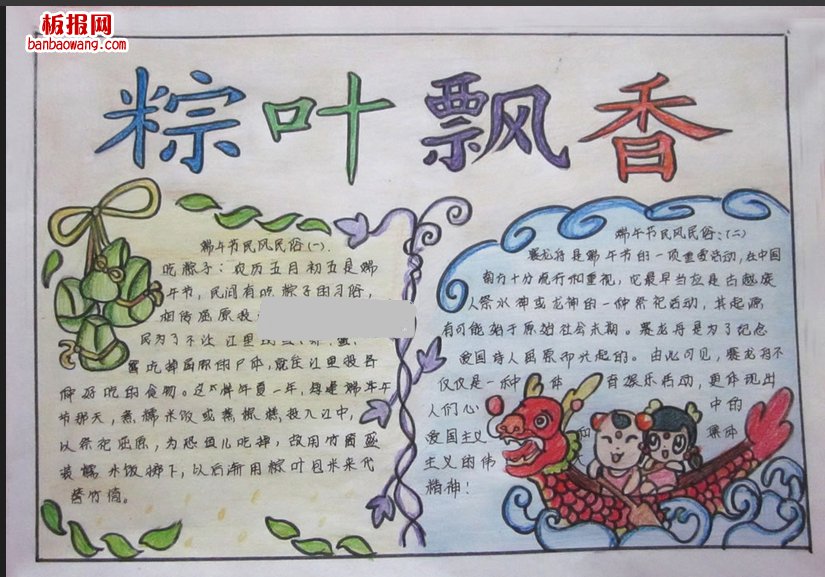 板报网
banbaowang.com
粽叶飘香
端午节民风民俗(一).
吃粽子：农历五月初五是端
午节，民间有吃粽子的习俗，
相传屈原投
民为了不让江里的
窝吃掉屈原的尸体，就往江里投各
种好吃的食物。这以年年夏一年，每逢端午午
节那天，煮糯米饭或蒸根糕投入江中，
以祭祀屈原，为恐鱼儿吃掉，故用竹筒盛
装糯米饭掷下，以后渐用粽叶包米来代
替竹筒。
端午节民风民俗：(二)
赛龙舟是端午节的一项重要活动，在中国
南方十分流行和重视，它最早当应是古越族
人祭水神或龙神的一种祭祀活动，其起源
有可能始于原始社会末期。赛龙舟是为了纪念
爱国诗人屈原而兴起的。由此可见，赛龙舟不
仅仅是一种 体 育娱乐活动，更体现出
人们心 中的
爱国主义 和 集体
主义的伟
精神！